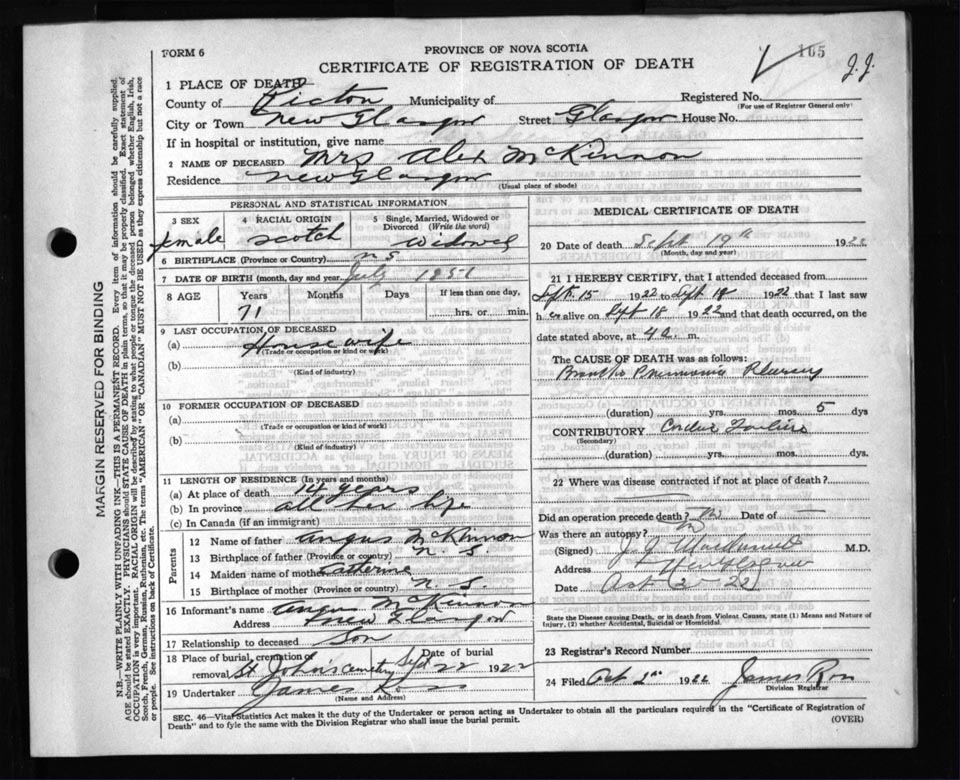 105
J. J.
FORM 6
PROVINCE OF NOVA SCOTIA
CERTIFICATE OF REGISTRATION OF DEATH
1 PLACE OF DEATH
County of Pictou Municipality of Registered No.
(For use of Registrar General only)
City or Town New Glasgow Street Glasgow House No.
If in hospital or institution, give name
2 NAME OF DECEASED Mrs Alex McKinnon
Residence New Glasgow
(Usual place of abode)
PERSONAL AND STATISTICAL INFORMATION
3 SEX female
4 RACIAL ORIGIN Scotch
5 Single, Married, Widowed or Divorced (Write the word) Widowed
6 BIRTHPLACE (Province or Country) N S
7 DATE OF BIRTH (month, day and year) July 1851
8 AGE Years 71 Months Days If less than one day, hrs. or min.
9 LAST OCCUPATION OF DECEASED
(a) Housewife
(Trade or occupation or kind or work)
(b)
(Kind of industry)
10 FORMER OCCUPATION OF DECEASED
(a)
(Trade or occupation or kind of work)
(b)
(Kind of industry)
11 LENGTH OF RESIDENCE (In years and months)
(a) At place of death years
(b) In province all her life
(c) In Canada (if an immigrant)
Parents
12 Name of father Angus McKinnon
13 Birthplace of father (Province or country) N. S.
14 Maiden name of mother Catherine
15 Birthplace of mother (Province or country) N. S.
16 Informant's name Angus McKinnon
Address New Glasgow
17 Relationship to deceased Son
18 Place of burial, cremation or removal St John's Cemetery Sept 22 1922
19 Undertaker James Ross
(Name and Address)
MEDICAL CERTIFICATE OF DEATH
20 Date of death Sept 19th 1922
(Month, day and year)
21 I HEREBY CERTIFY, that I attended deceased from
Sept. 15 1922 to Sept 18 1922 that I last saw
her alive on Sept 18 1922 and that death occurred, on the
date stated above, at 4 a. m.
The CAUSE OF DEATH was as follows:
Broncho Pneumonia Pleurisy
(duration) yrs. mos. 5 dys
CONTRIBUTORY Cardiac Failure
(Secondary)
(duration) yrs. mos. dys.
22 Where was disease contracted if not at place of death?
Did an operation precede death? No Date of —
Was there an autopsy? No
(Signed) M.D.
Address New Glasgow
Date Oct 2 - 22
State the Disease causing Death, or in death from Violent Causes, state (1) Means and Nature of Injury, (2) whether Accidental, Suicidal or Homicidal.
23 Registrar's Record Number
24 Filed Oct 2nd 1922 James Ross
Division Registrar
SEC. 46—Vital Statistics Act makes it the duty of the Undertaker or person acting as Undertaker to obtain all the particulars required in the "Certificate of Registration of
Death" and to fyle the same with the Division Registrar who shall issue the burial permit.
(OVER)
MARGIN RESERVED FOR BINDING
N.B.—WRITE PLAINLY WITH UNFADING INK—THIS IS A PERMANENT RECORD. Every item of information should be carefully supplied.
AGE should be stated EXACTLY. PHYSICIANS should STATE CAUSE OF DEATH in plain terms, so that it may be properly classified. Exact statement of
OCCUPATION is very important. RACIAL ORIGIN will be described by stating to what people or tongue the deceased person belonged whether English, Irish,
Scotch, French, German, Russian, Ruthenian, etc. The terms "AMERICAN" OR "CANADIAN" MUST NOT BE USED as they express citizenship but not a race
or people. See instructions on back of Certificate.